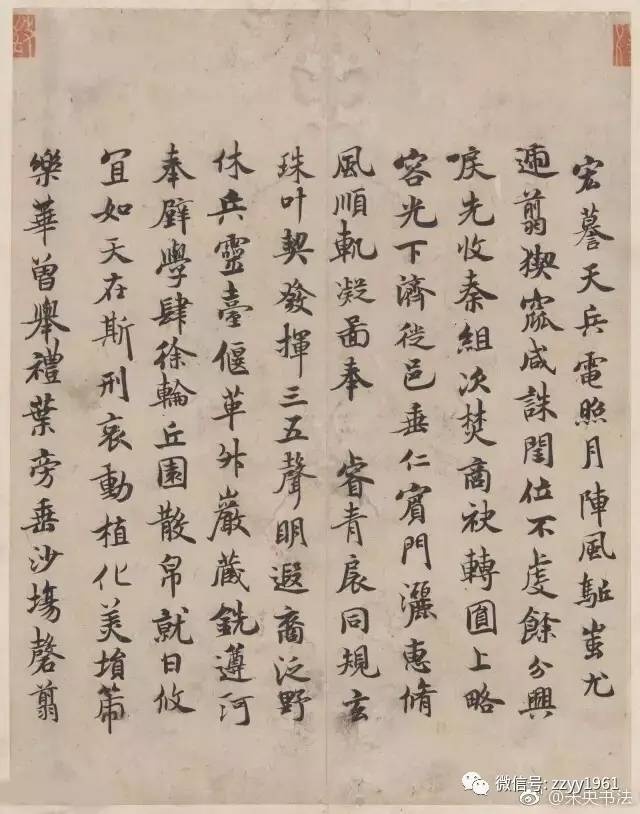 宏謩天兵電照月陣風駈蚩尤
迺翦猰窳咸誅閏位不虔餘分興
唳先收秦組次焚商袂轉圓上略
容光下濟徙邑垂仁賓門灑惠脩
風順軌凝啚奉 睿青扆同規玄
珠叶契發揮三五聲明遐裔泛野
休兵靈臺偃革外巖蔵銑遵河
奉璧學肆徐輪丘園散帛就日攸
宜如天在斯刑哀動植化美
樂華曽舉禮葉旁垂沙塲磬翦
微信号: zzyy1961
@未央书法